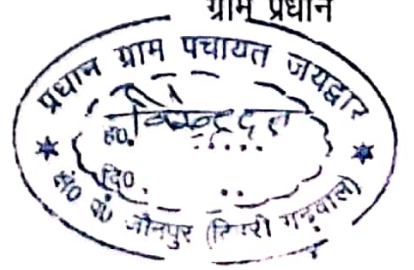 ग्राम प्रधान
प्रधान ग्राम पचायत जयद्वार
ह०
दि०
जौनपुर (टिहरी गढ़वाल)